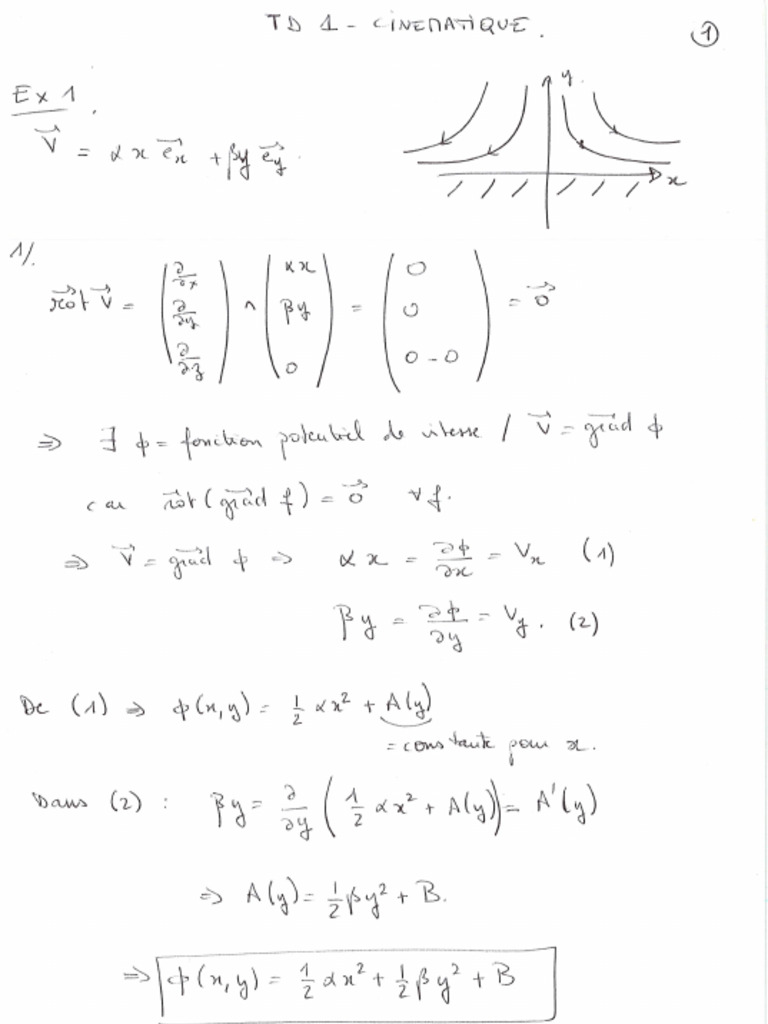 TD 1 - CINEMATIQUE.
①
Ex 1.
y
x
V⃗ = αx e⃗x + βy e⃗y.
1/.
rot⃗ V⃗ = (∂/∂x ∂/∂y ∂/∂z) ∧ (αx βy 0) = (0 0 0-0) = 0⃗
⇒ ∃ ϕ = fonction potentiel de vitesse / V⃗ = grad⃗ ϕ
car rot⃗(grad⃗ f) = 0⃗ ∀f.
⇒ V⃗ = grad⃗ ϕ ⇒ αx = ∂ϕ/∂x = Vx (1)
βy = ∂ϕ/∂y = Vy. (2)
De (1) ⇒ ϕ(x,y) = 1/2 αx² + A(y)
= constante pour x.
Dans (2) : βy = ∂/∂y (1/2 αx² + A(y)) = A'(y)
⇒ A(y) = 1/2 βy² + B.
⇒ ϕ(x,y) = 1/2 αx² + 1/2 βy² + B